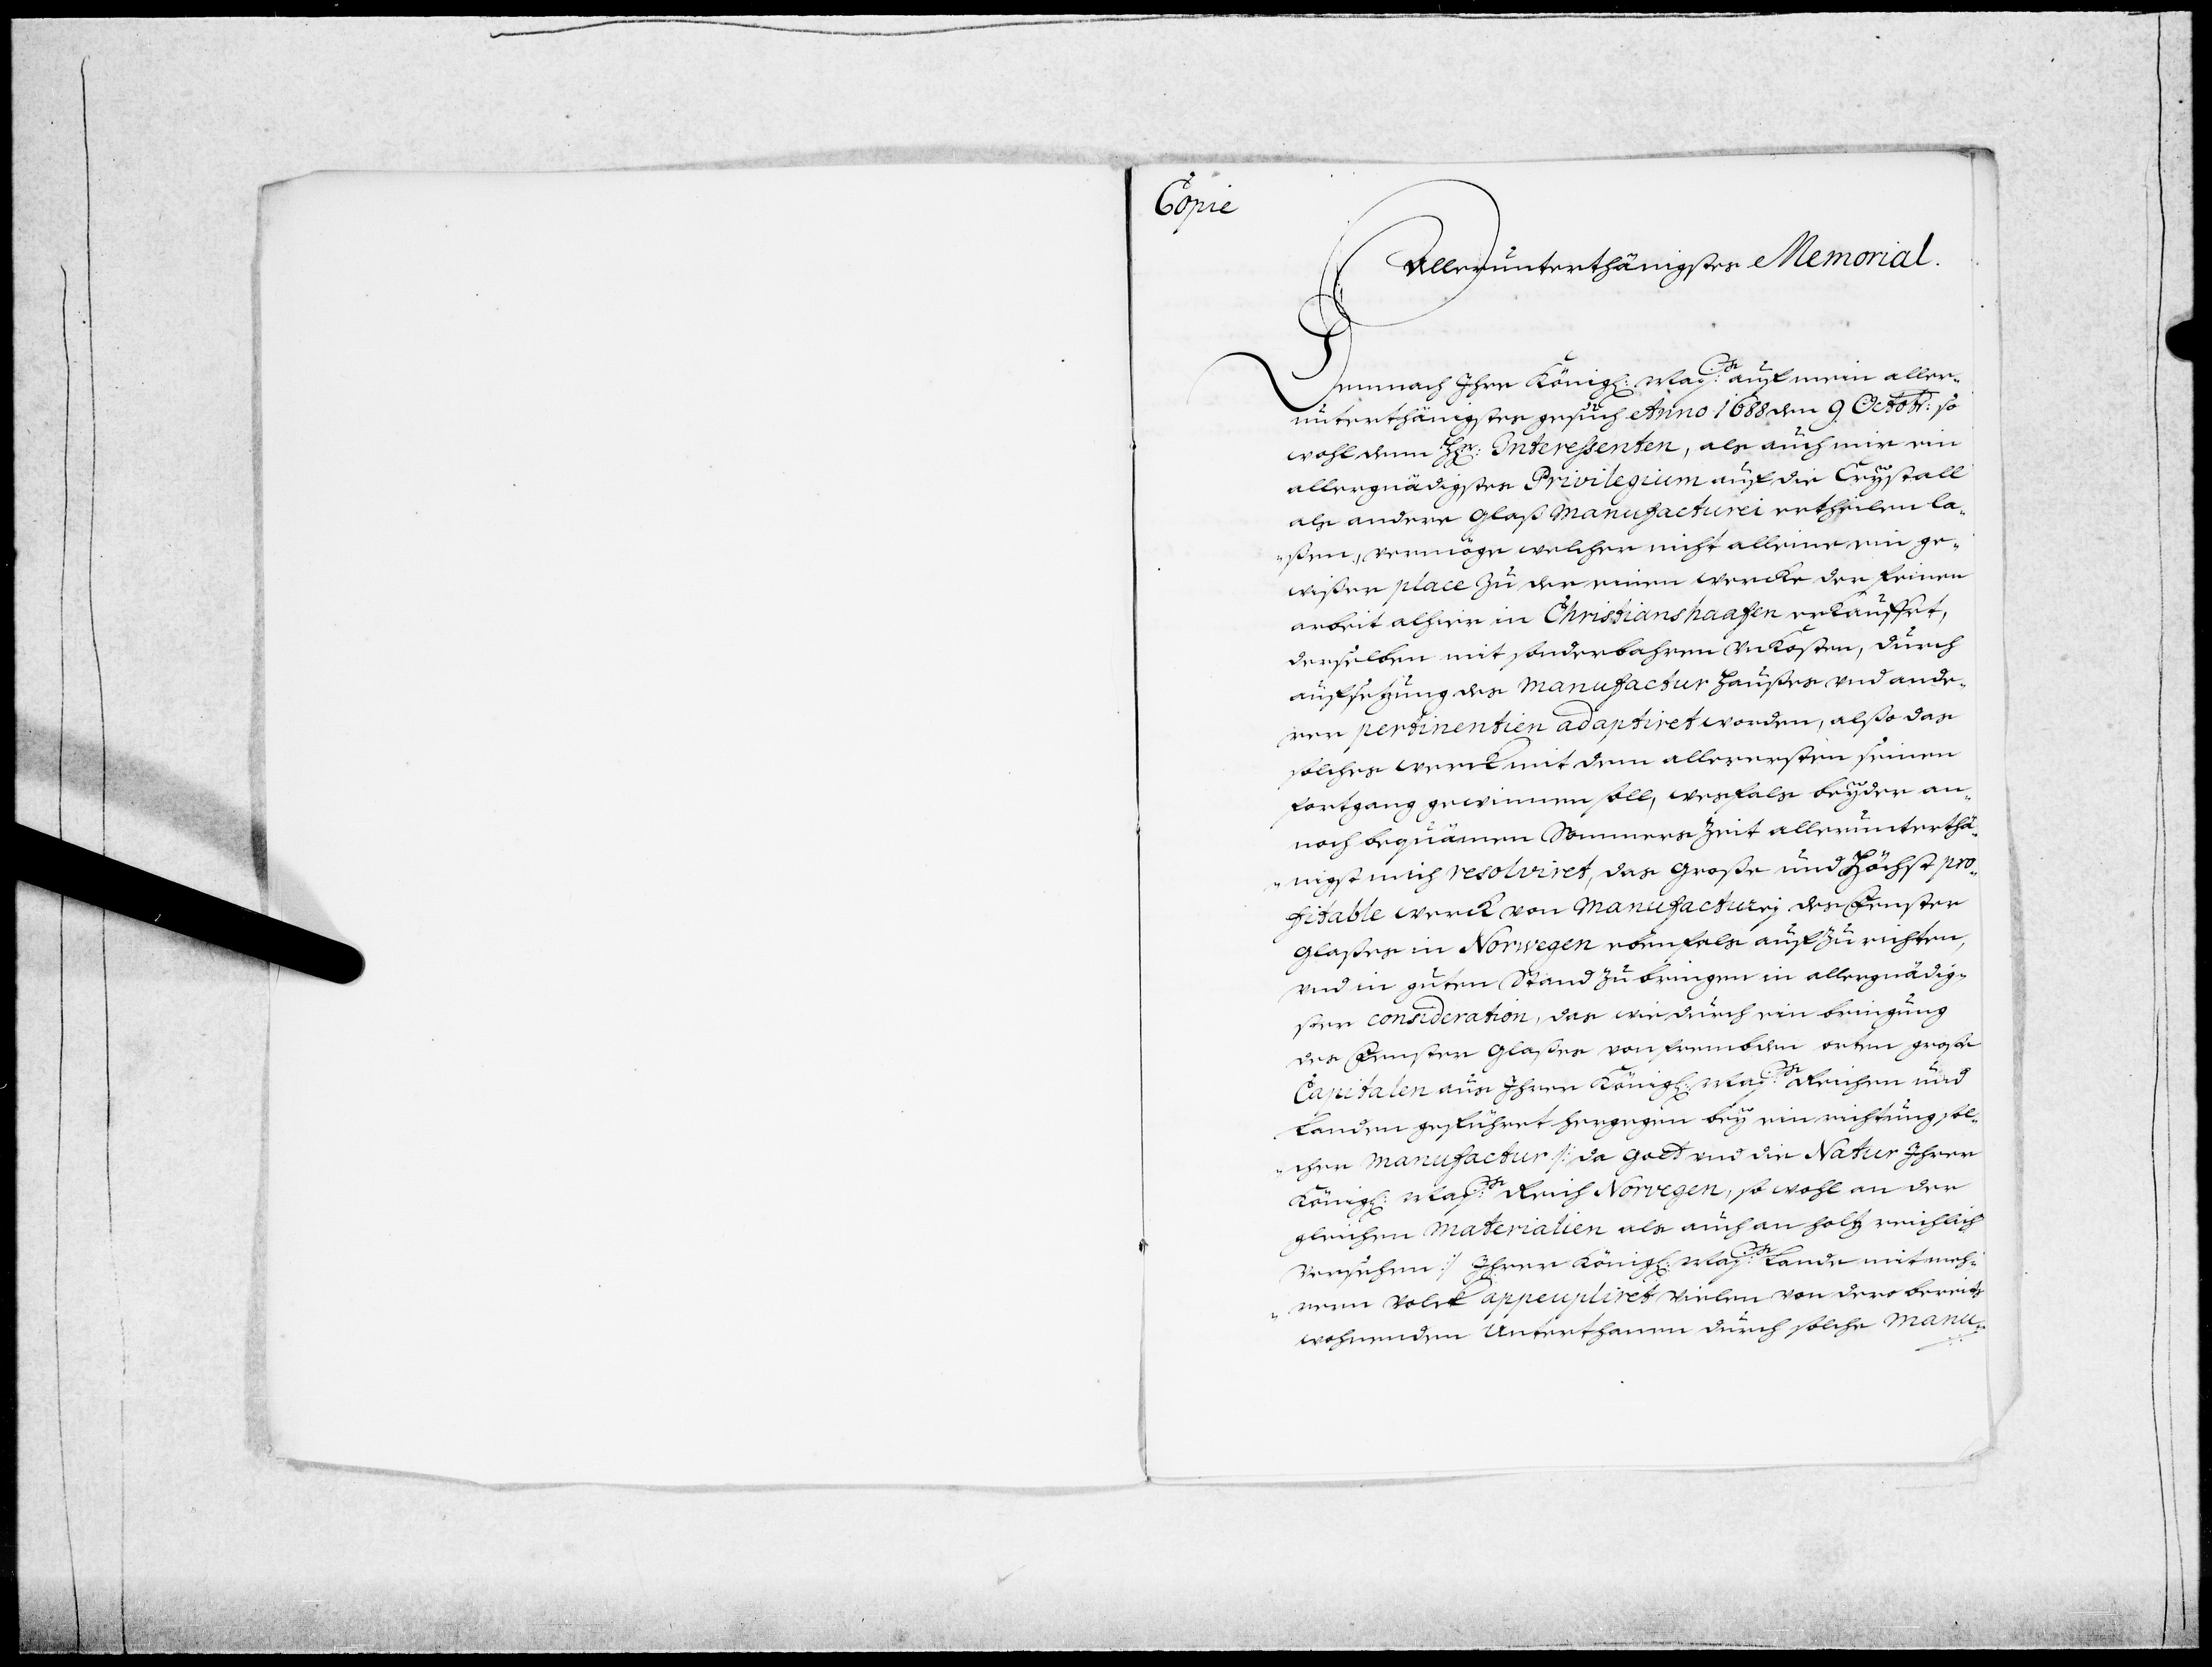 Copie
Allerunterthänigstes Memorial.
Demnach Ihre Königl: May:tt auf mein aller-
unterthänigstes gesuch Anno 1688 den 9 Octobr: so
wohl denn HEr: Interessenten, als auch mir ein
allergnädigstes Privilegium auf die Crÿstall
als andere Glaß Manufacturei ertheilen la-
ßen, vermöge welcher nicht alleine ein ge-
wißer place zu der einen wercke der feinen
arbeit alhier in Christianshaafen erkauffet,
derselben mit sonderbahren vnkosten, durch
aufsetzung des Manufactur Haußes vnd ande-
ren pertinentien adaptiret worden, alßo das
solches werck mit dem allerersten seinen
fortgang gewinnen soll, wesfals beÿ der an-
noch bequämen Sommers Zeit allerunterthä-
nigst mich resolviret, das große und Höchst pro-
fitable werck von Manufacturej des Fenster
Glaßes in Norwegen ebenfals auf zu richten,
vnd in guten Stand zu bringen in allergnädig-
ster consideration, das wie durch ein bringung
des Fenster Glaßes von frembden orten große
Capitalen aus Ihrer Königl: May:tt Reichen und
Landen geführet hergegen beÿ ein richtung sol-
cher Manufactur /: da Gott vnd die Natur Ihrer
Königl: May:tt Reich Norvegen, so wohl an der
gleichen Materialien als auch an holtz reichlich
versehen :/ Ihrer Königl: May:tt Lande mit meh-
rern Volck appeupliret vielen von dero bereits
wohnenden Unterthanen durch solche Manu-